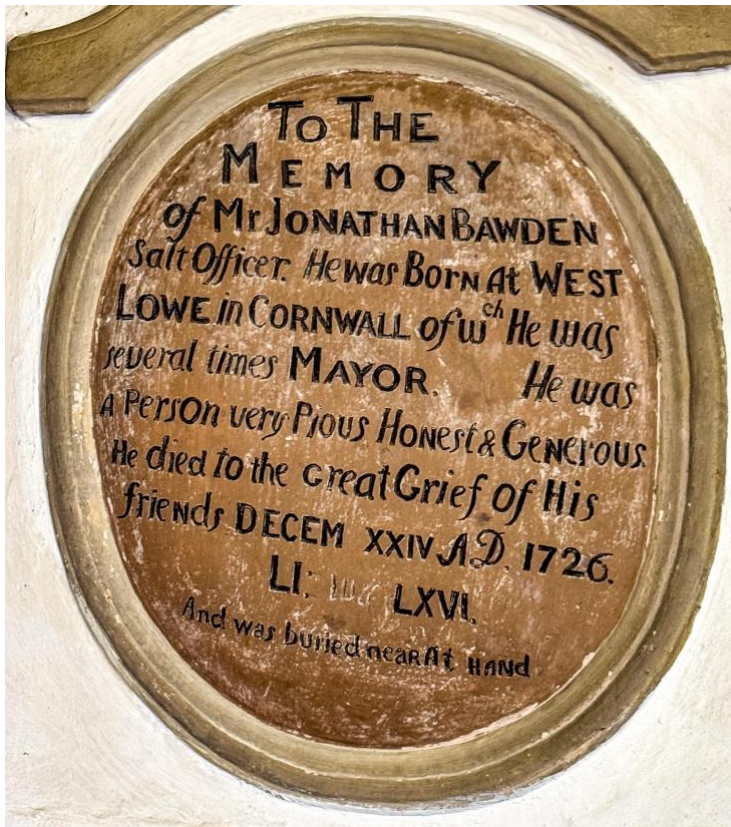 TO THE
MEMORY
of Mr JONATHAN BAWDEN
Salt Officer. He was Born At WEST
LOWE in CORNWALL of wch He was
several times MAYOR. He was
A Person very Pious Honest & Generous
He died to the great Grief of His
friends DECEM XXIV AD. 1726.
LXVI.
And was buried near At HAND